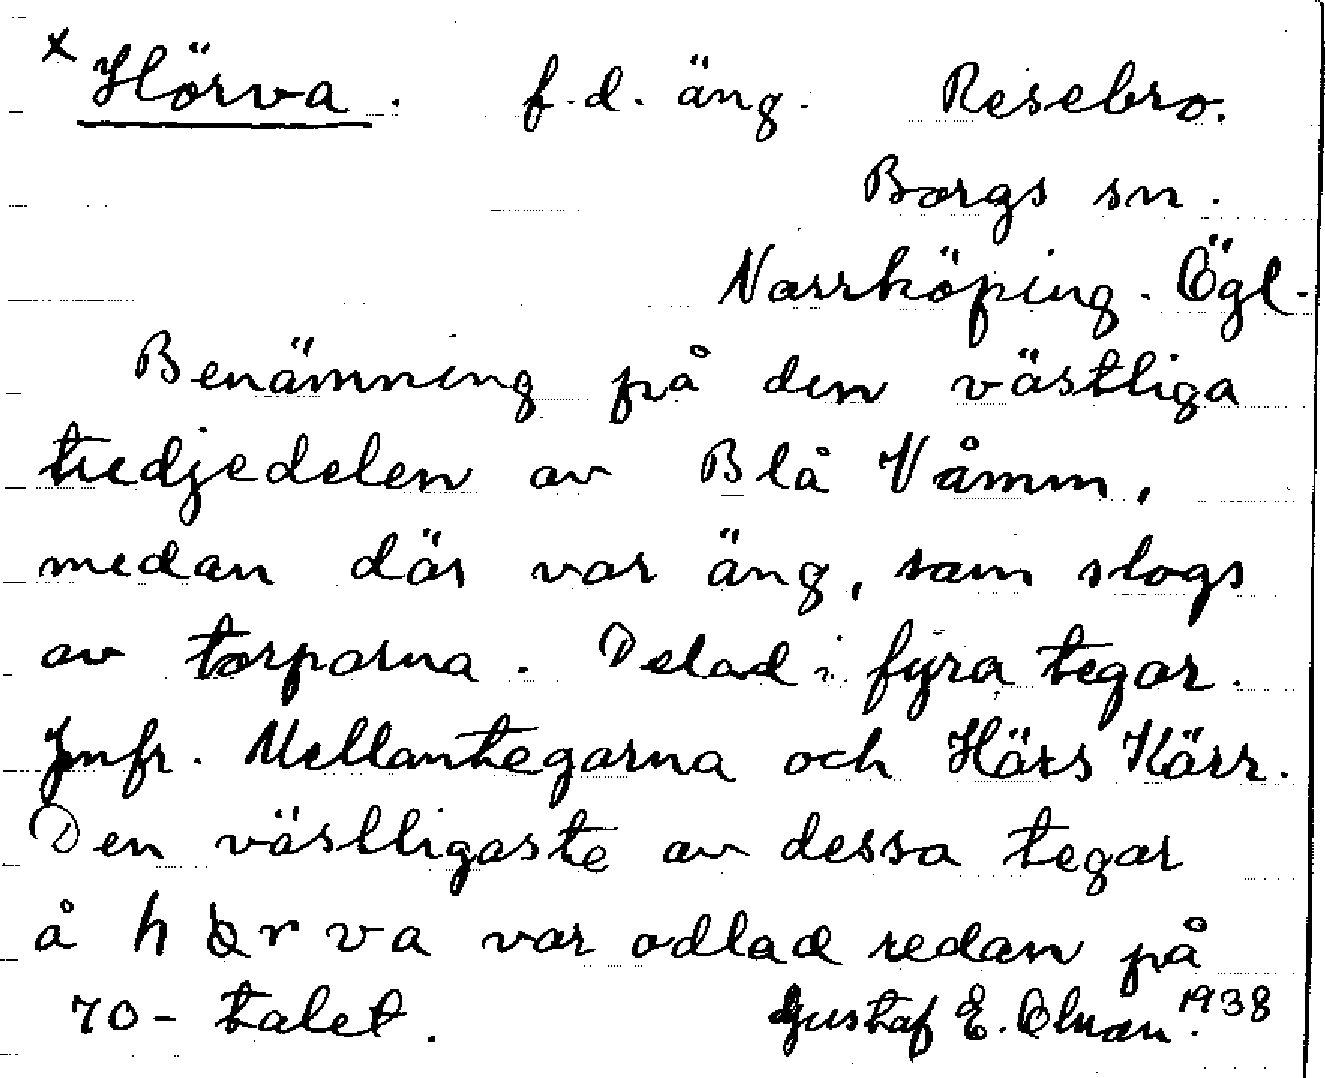 x Hörva. f.d. äng. Risebro.
Borgs sn.
Norrköping. Ögl.
Benämning på den västliga
tredjedelen av Blå Våmm,
medan där var äng, som slogs
av torparna. Delad i fyra tegar.
Jmfr. Mellantegarna och Härs Kärr.
Den västligaste av dessa tegar
å hörva var odlad redan på
70-talet. Gustaf E. 1938